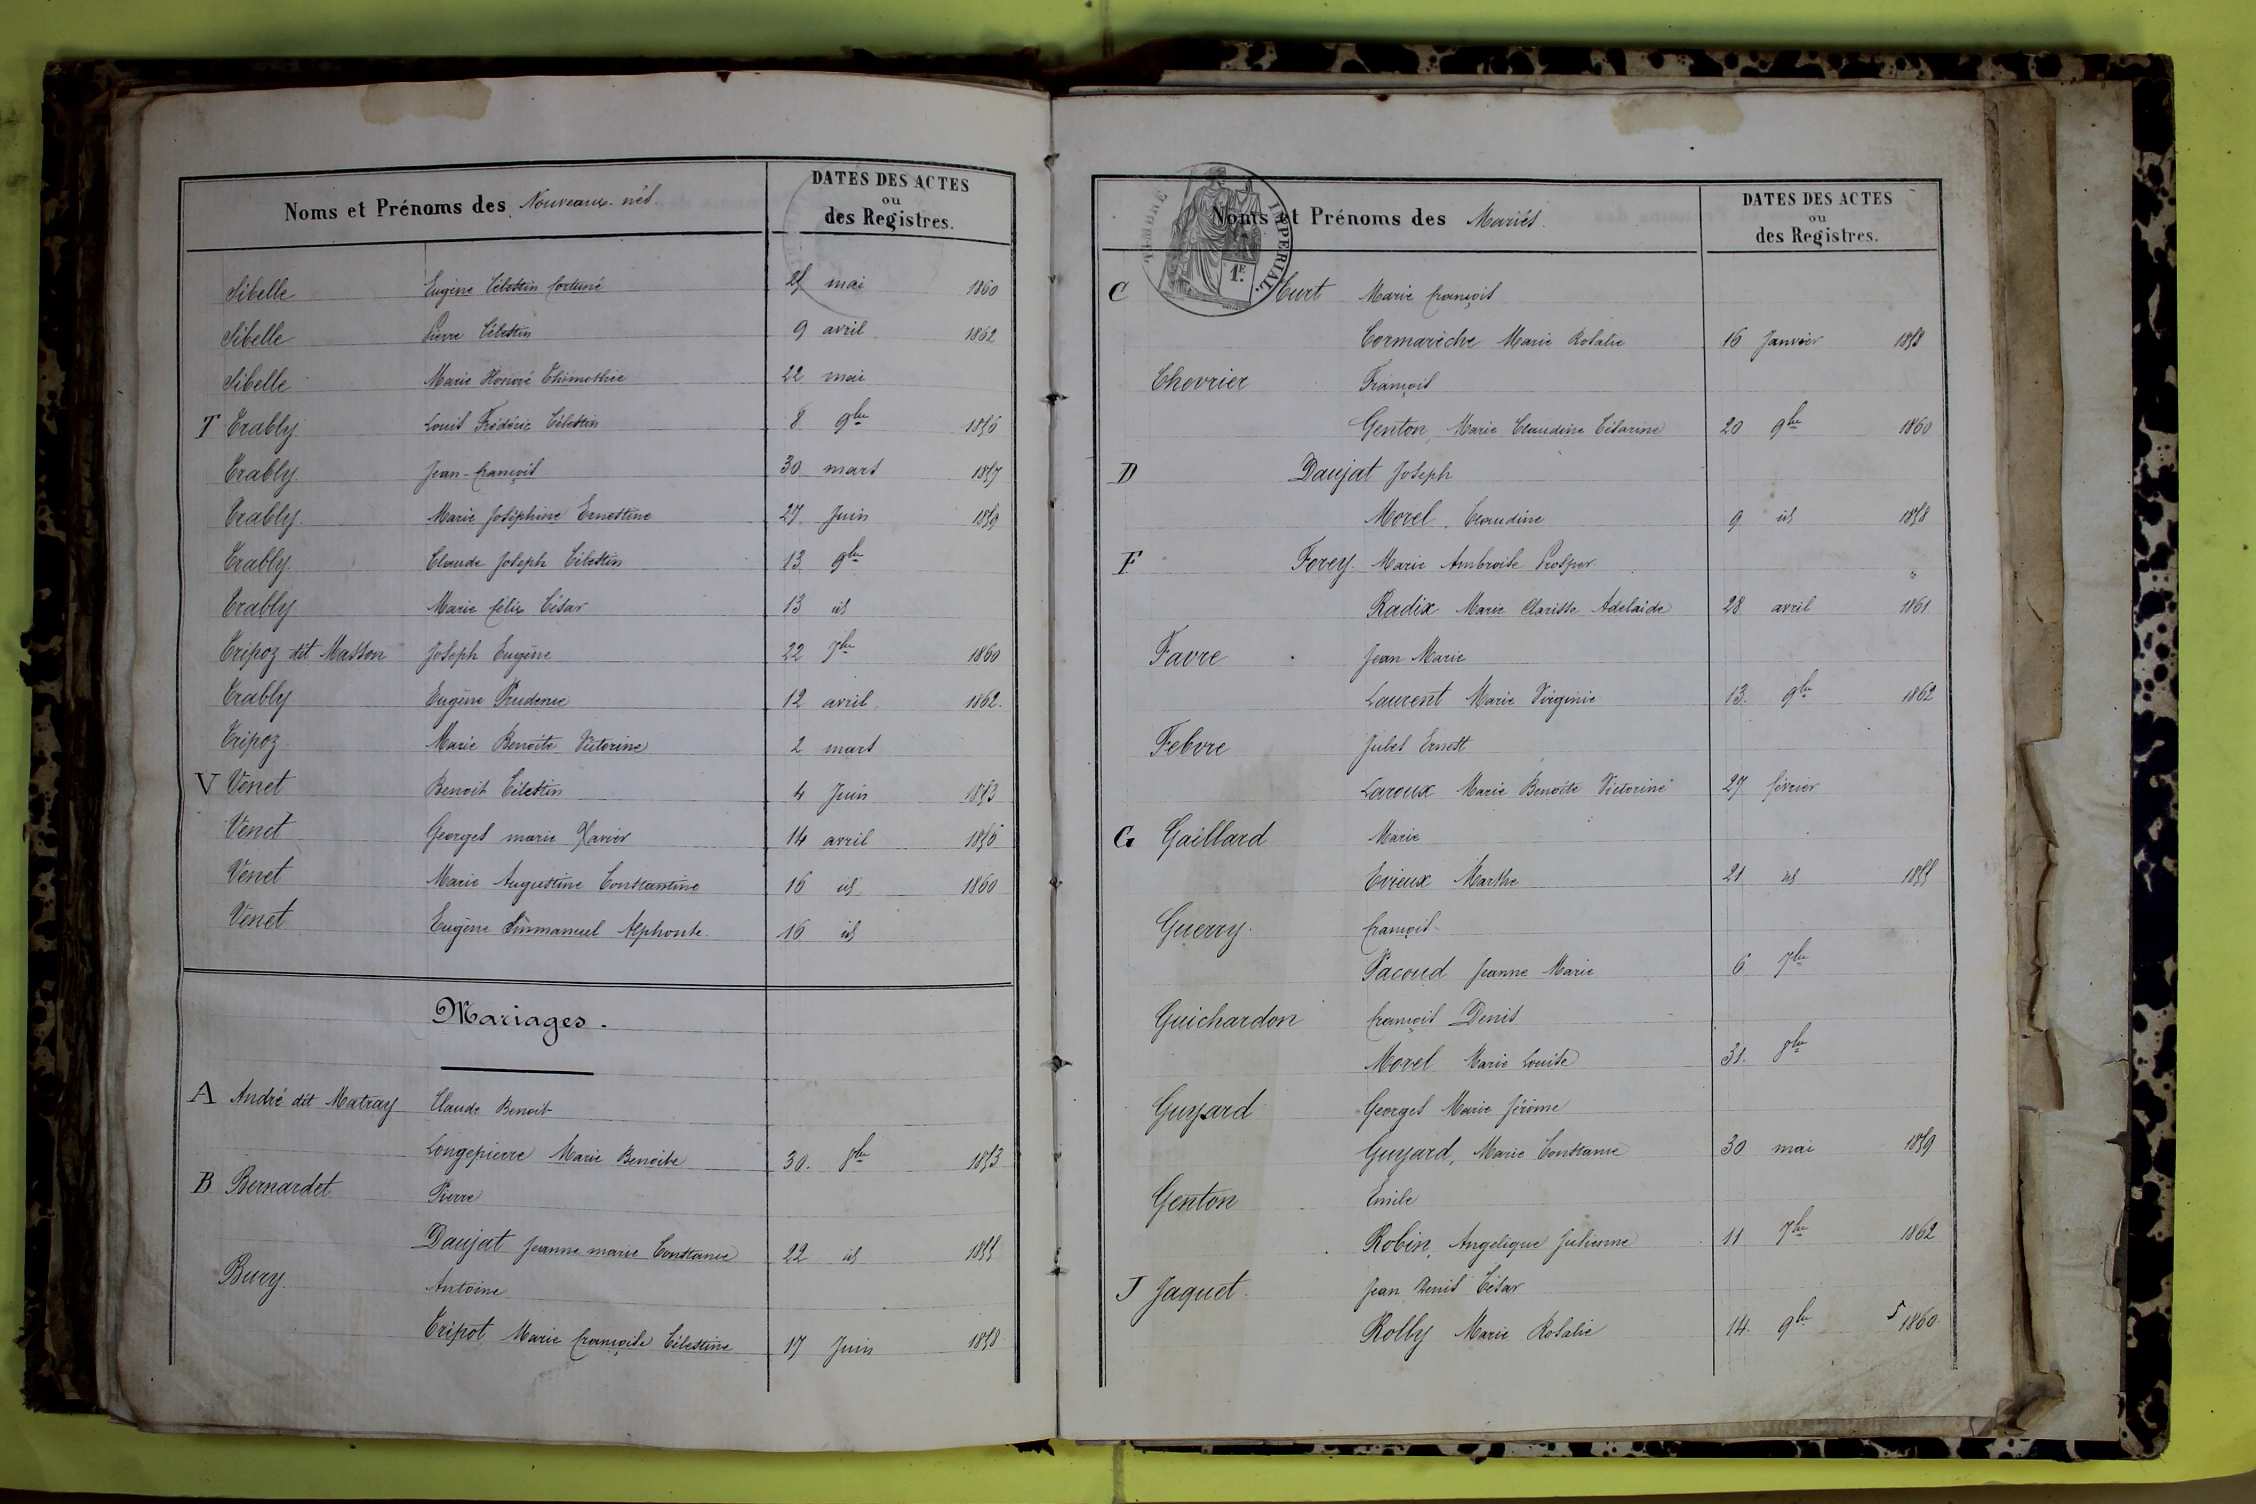 Noms et Prénoms des Nouveaux-nés.
DATES DES ACTES
ou
des Registres.
Sibelle Eugène Célestin fortuné mai 1860
Sibelle Pierre Célestin 9 avril 1862
Sibelle Marie Honoré Thimothée 22 mai
T Trably Louis Frédéric Célestin 8 9bre 1856
Trably Jean-françois 30 mars 1857
Trably Marie Joséphine Ernestine 27 Juin 1859
Trably Claude Joseph Célestin 13 9bre
Trably Marie félix César 13 id
Tripoz dit Masson Joseph Eugène 22 7bre 1860
Trably Eugène Prudence 12 avril 1862.
Tripoz Marie Benoite Victorine 2 mars
V Venet Benoit Célestin 4 Juin 1853
Venet Georges marie Xavier 14 avril 1856
Venet Marie Augustine Constantine 16 id 1860
Venet Eugène Emmanuel Alphonse 16 id
Mariages.
A André dit Matray Claude Benoit
Longepierre Marie Benoite 30. 8bre 1853
B Bernardet Pierre
Daujat Jeanne marie Constance 22 id 1855
Bury Antoine
Tripot Marie françoise Célestine 17 Juin 1858
TIMBRE IMPERIAL.
1E.
Noms et Prénoms des Mariés.
DATES DES ACTES
ou
des Registres.
C Curt Marie françois
Cormarèche Marie Rosalie 16 Janvier 1858
Chevrier François
Genton, Marie Claudine Césarine 20 9bre 1860
D Daujat Joseph
Morel, Claudine 9 id 1858
F Forey Marie Ambroise Prosper
Radix Marie Clarisse Adelaïde 28 avril 1861
Favre Jean Marie
Laurent Marie Virginie 13. 9bre 1862
Febvre Jules Ernest
Laroux Marie Benoîte Victorine 27 février
G Gaillard Marie
Evieux Marthe 21 id 1855
Guerry françois
Pacoud Jeanne Marie 6 7bre
Guichardon françois Denis
Morel Marie Louise 31. 8bre
Guyard Georges Marie Jérôme
Guyard, Marie Constance 30 mai 1859
Genton Emile
Robin, Angelique Julienne 11 7bre 1862
J Jaquet Jean Denis César
Rolly Marie Rosalie 14. 9bre 1860